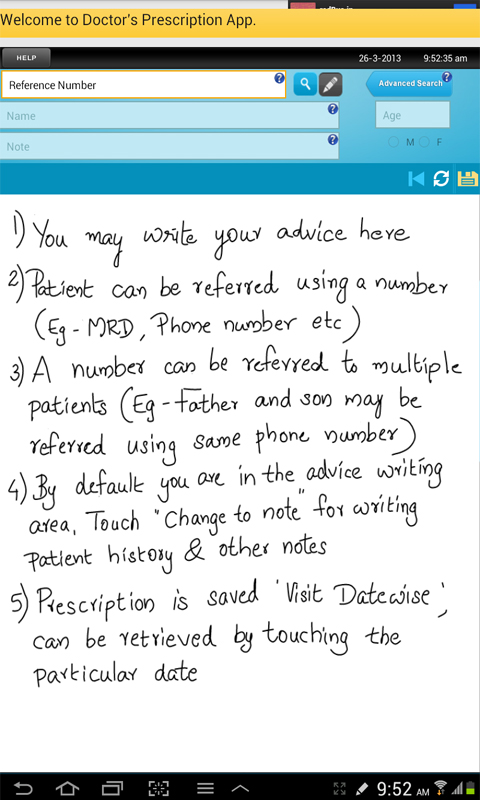 Welcome to Doctor's Prescription App.
HELP
26-3-2013 9:52:35 am
Reference Number ?
Advanced Search ?
Name ?
Age
Note ?
M F
1) You may write your advice here
2) Patient can be referred using a number
(Eg - MRD, Phone number etc)
3) A number can be referred to multiple
patients (Eg - Father and son may be
referred using same phone number)
4) By default you are in the advice writing
area, Touch "Change to note" for writing
Patient history & other notes
5) Prescription is saved 'Visit Datewise',
can be retrieved by touching the
particular date
9:52 AM